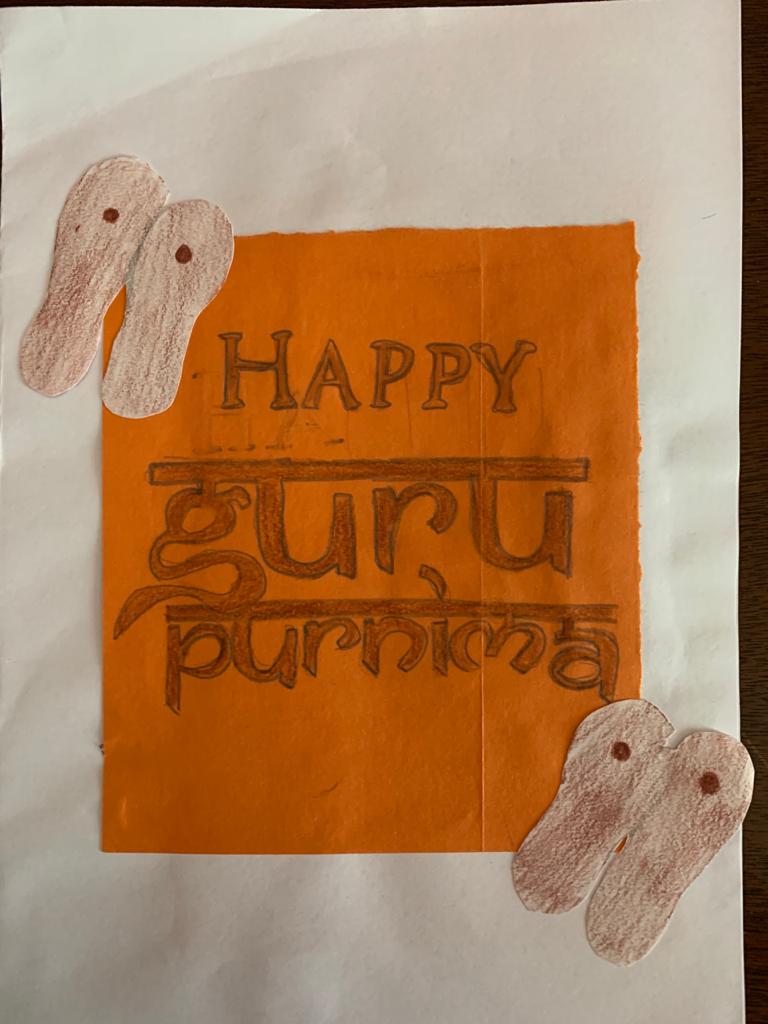 HAPPY
guru
purnima